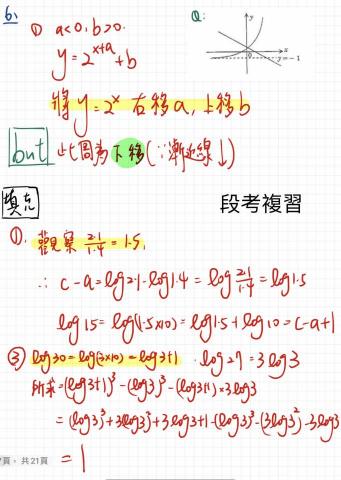 6.
① a<0, b>0.
y=2^{x+a}+b
Q:
y
x
0
y=-1
將 y=2^x 右移a, 上移b
but 此圖為下移(∵漸近線↓)
填充
段考複習
①. 觀察 2.1/1.4 = 1.5,
∴ c-a=log2.1-log1.4 = log 2.1/1.4 = log1.5
log15=log(1.5×10)=log1.5+log10=c-a+1
③ log30=log(3×10)=log3+1 . log27=3log3
所求=(log3+1)³-(log3)³-(log3+1)×3log3
=(log3)³+3(log3)²+3log3+1-(log3)³-(3log3²)-3log3
=1
頁,共21頁